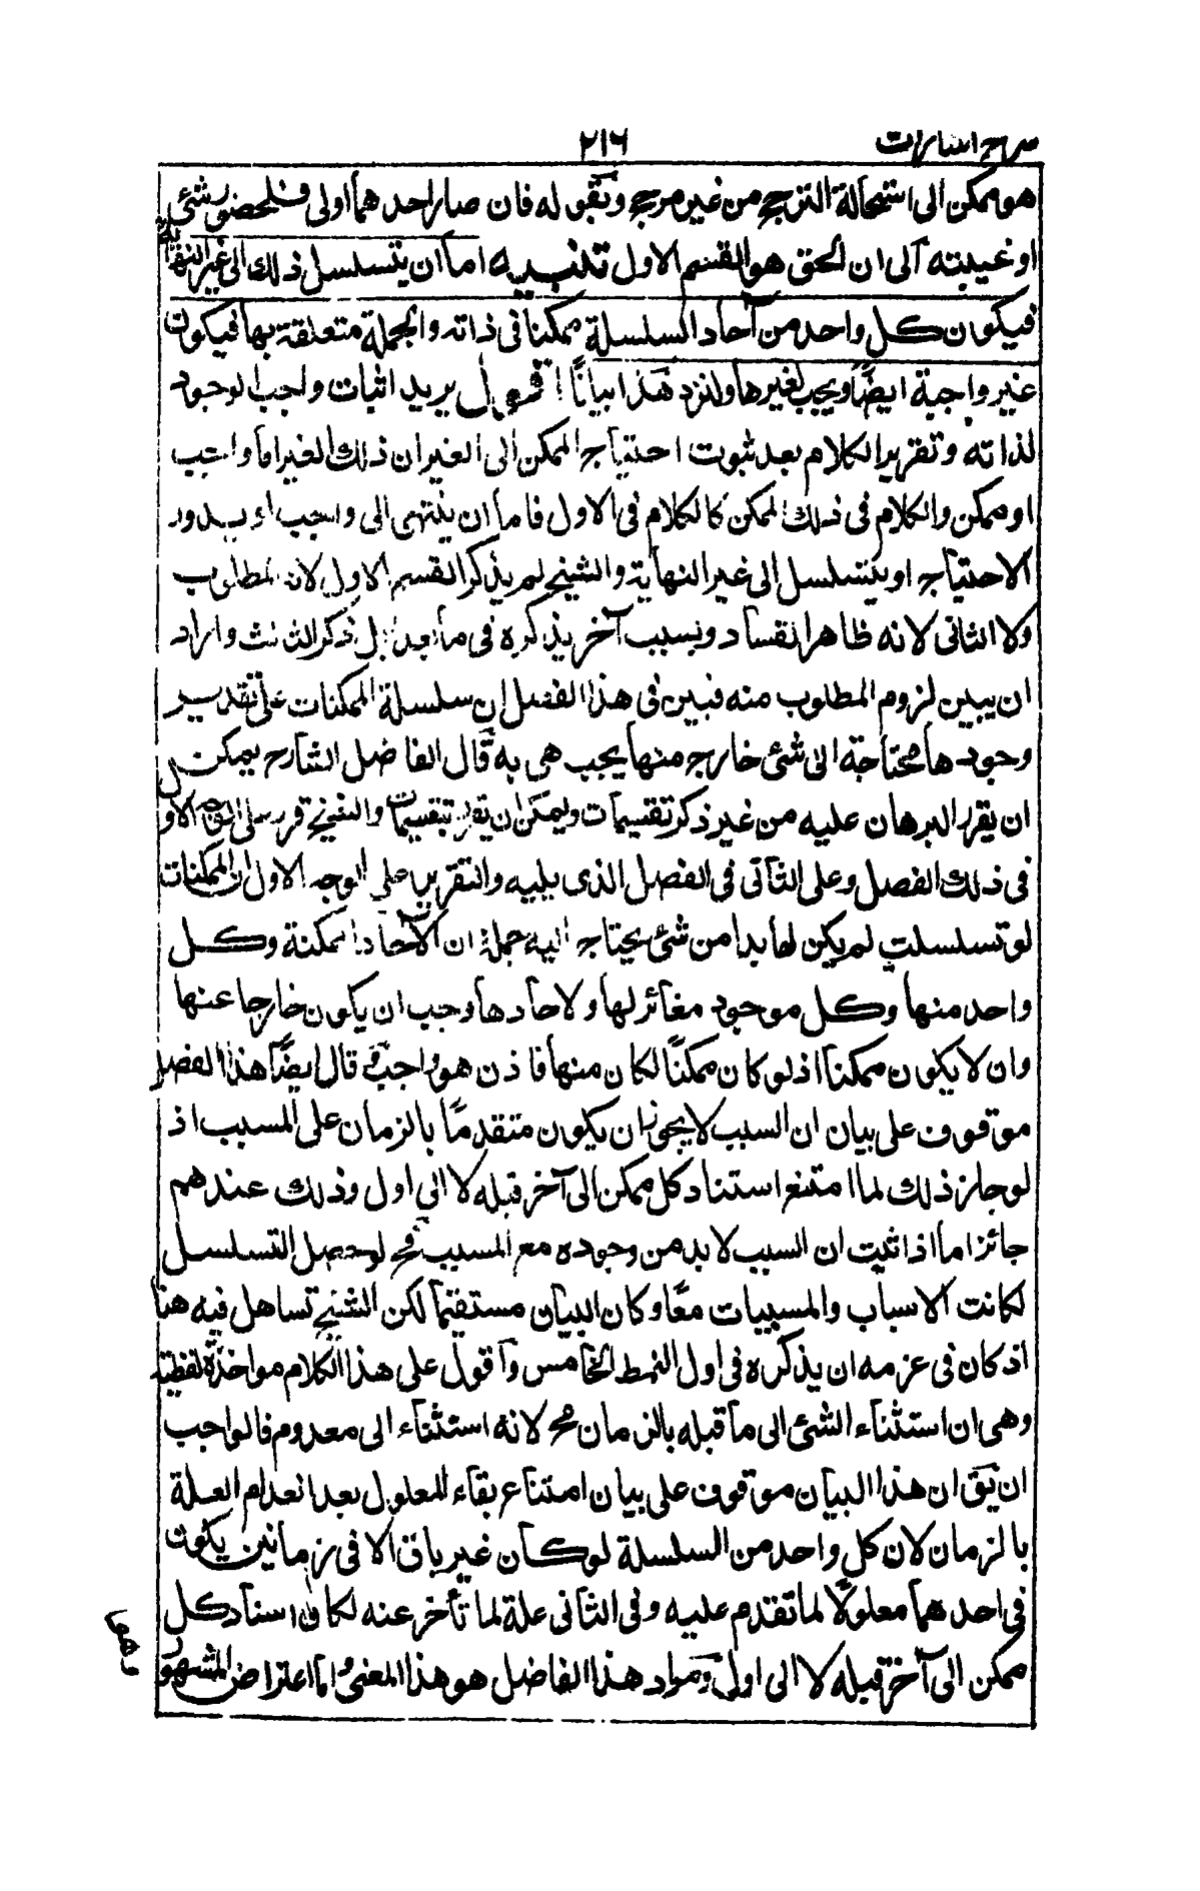 شرح اشارات ٢١٦
هو ممكن الى استحالة الترجح من غير مرجح وبقوله فان صار احدهما اولى فلحضور شئ
او غيبته الى ان الحق هو القسم الاول تنبيه اما ان يتسلسل ذلك الى غير النهاية
فيكون كل واحد من آحاد السلسلة ممكنا فى ذاته والجملة متعلقة بها فيكون
غير واجبة ايضًا ويجب بغيرها ولنزد هذا بيانًا اقول يريد اثبات واجب الوجود
لذاته وتقرير الكلام بعد ثبوت احتياج الممكن الى الغير ان ذلك الغير اما واجب
او ممكن والكلام فى ذلك الممكن كالكلام فى الاول فاما ان ينتهى الى واجب او يدور
الاحتياج او يتسلسل الى غير النهاية والشيخ لم يذكر القسم الاول لانه المطلوب
ولا الثانى لانه ظاهر الفساد وبسبب آخر يذكره فى ما بعد بل ذكر الثالث واراد
ان يبين لزوم المطلوب منه فبين فى هذا الفصل ان سلسلة الممكنات على تقدير
وجودها محتاجة الى شئ خارج منها يجب هى به قال الفاضل الشارح يمكن
ان يقرر البرهان عليه من غير ذكر تقسيمات ويمكن ان يقرر بتقسيمات والشيخ قرر على الوجه الاول
فى ذلك الفصل وعلى الثانى فى الفصل الذى يليه والتقرير على الوجه الاول ان الممكنات
لو تسلسلت لم يكن لها بدا من شئ يحتاج اليه جملة ان الآحاد الممكنة وكل
واحد منها وكل موجود مغائر لها ولاحادها وجب ان يكون خارجا عنها
وان لا يكون ممكنا اذ لو كان ممكنًا لكان منها فاذن هو واجب وقال ايضًا هذا الفصل
موقوف على بيان ان السبب لا يجوز ان يكون متقدمًا بالزمان على المسبب اذ
لو جاز ذلك لما امتنع استناد كل ممكن الى آخر قبله لا الى اول وذلك عندهم
جائز اما اذا ثبت ان السبب لا بد من وجوده مع المسبب فح لو حصل التسلسل
لكانت الاسباب والمسببات معًا وكان البيان مستقيما لكن الشيخ تساهل فيه هنا
اذ كان فى عزمه ان يذكره فى اول النمط الخامس واقول على هذا الكلام مواخذة لفظية
وهى ان استثناء الشئ الى ما قبله بالزمان مح لانه استثناء الى معدوم فالواجب
ان يق ان هذا البيان موقوف على بيان امتناع بقاء المعلول بعد انعدام العلة
بالزمان لان كل واحد من السلسلة لو كان غير باق الا فى زمانين يكون
فى احدهما معلولًا لما تقدم عليه وفى الثانى علة لما تأخر عنه لكان اسناد كل
ممكن الى آخر قبله لا الى اول ومراد هذا الفاضل هو هذا المعنى واما اعتراض المشهور